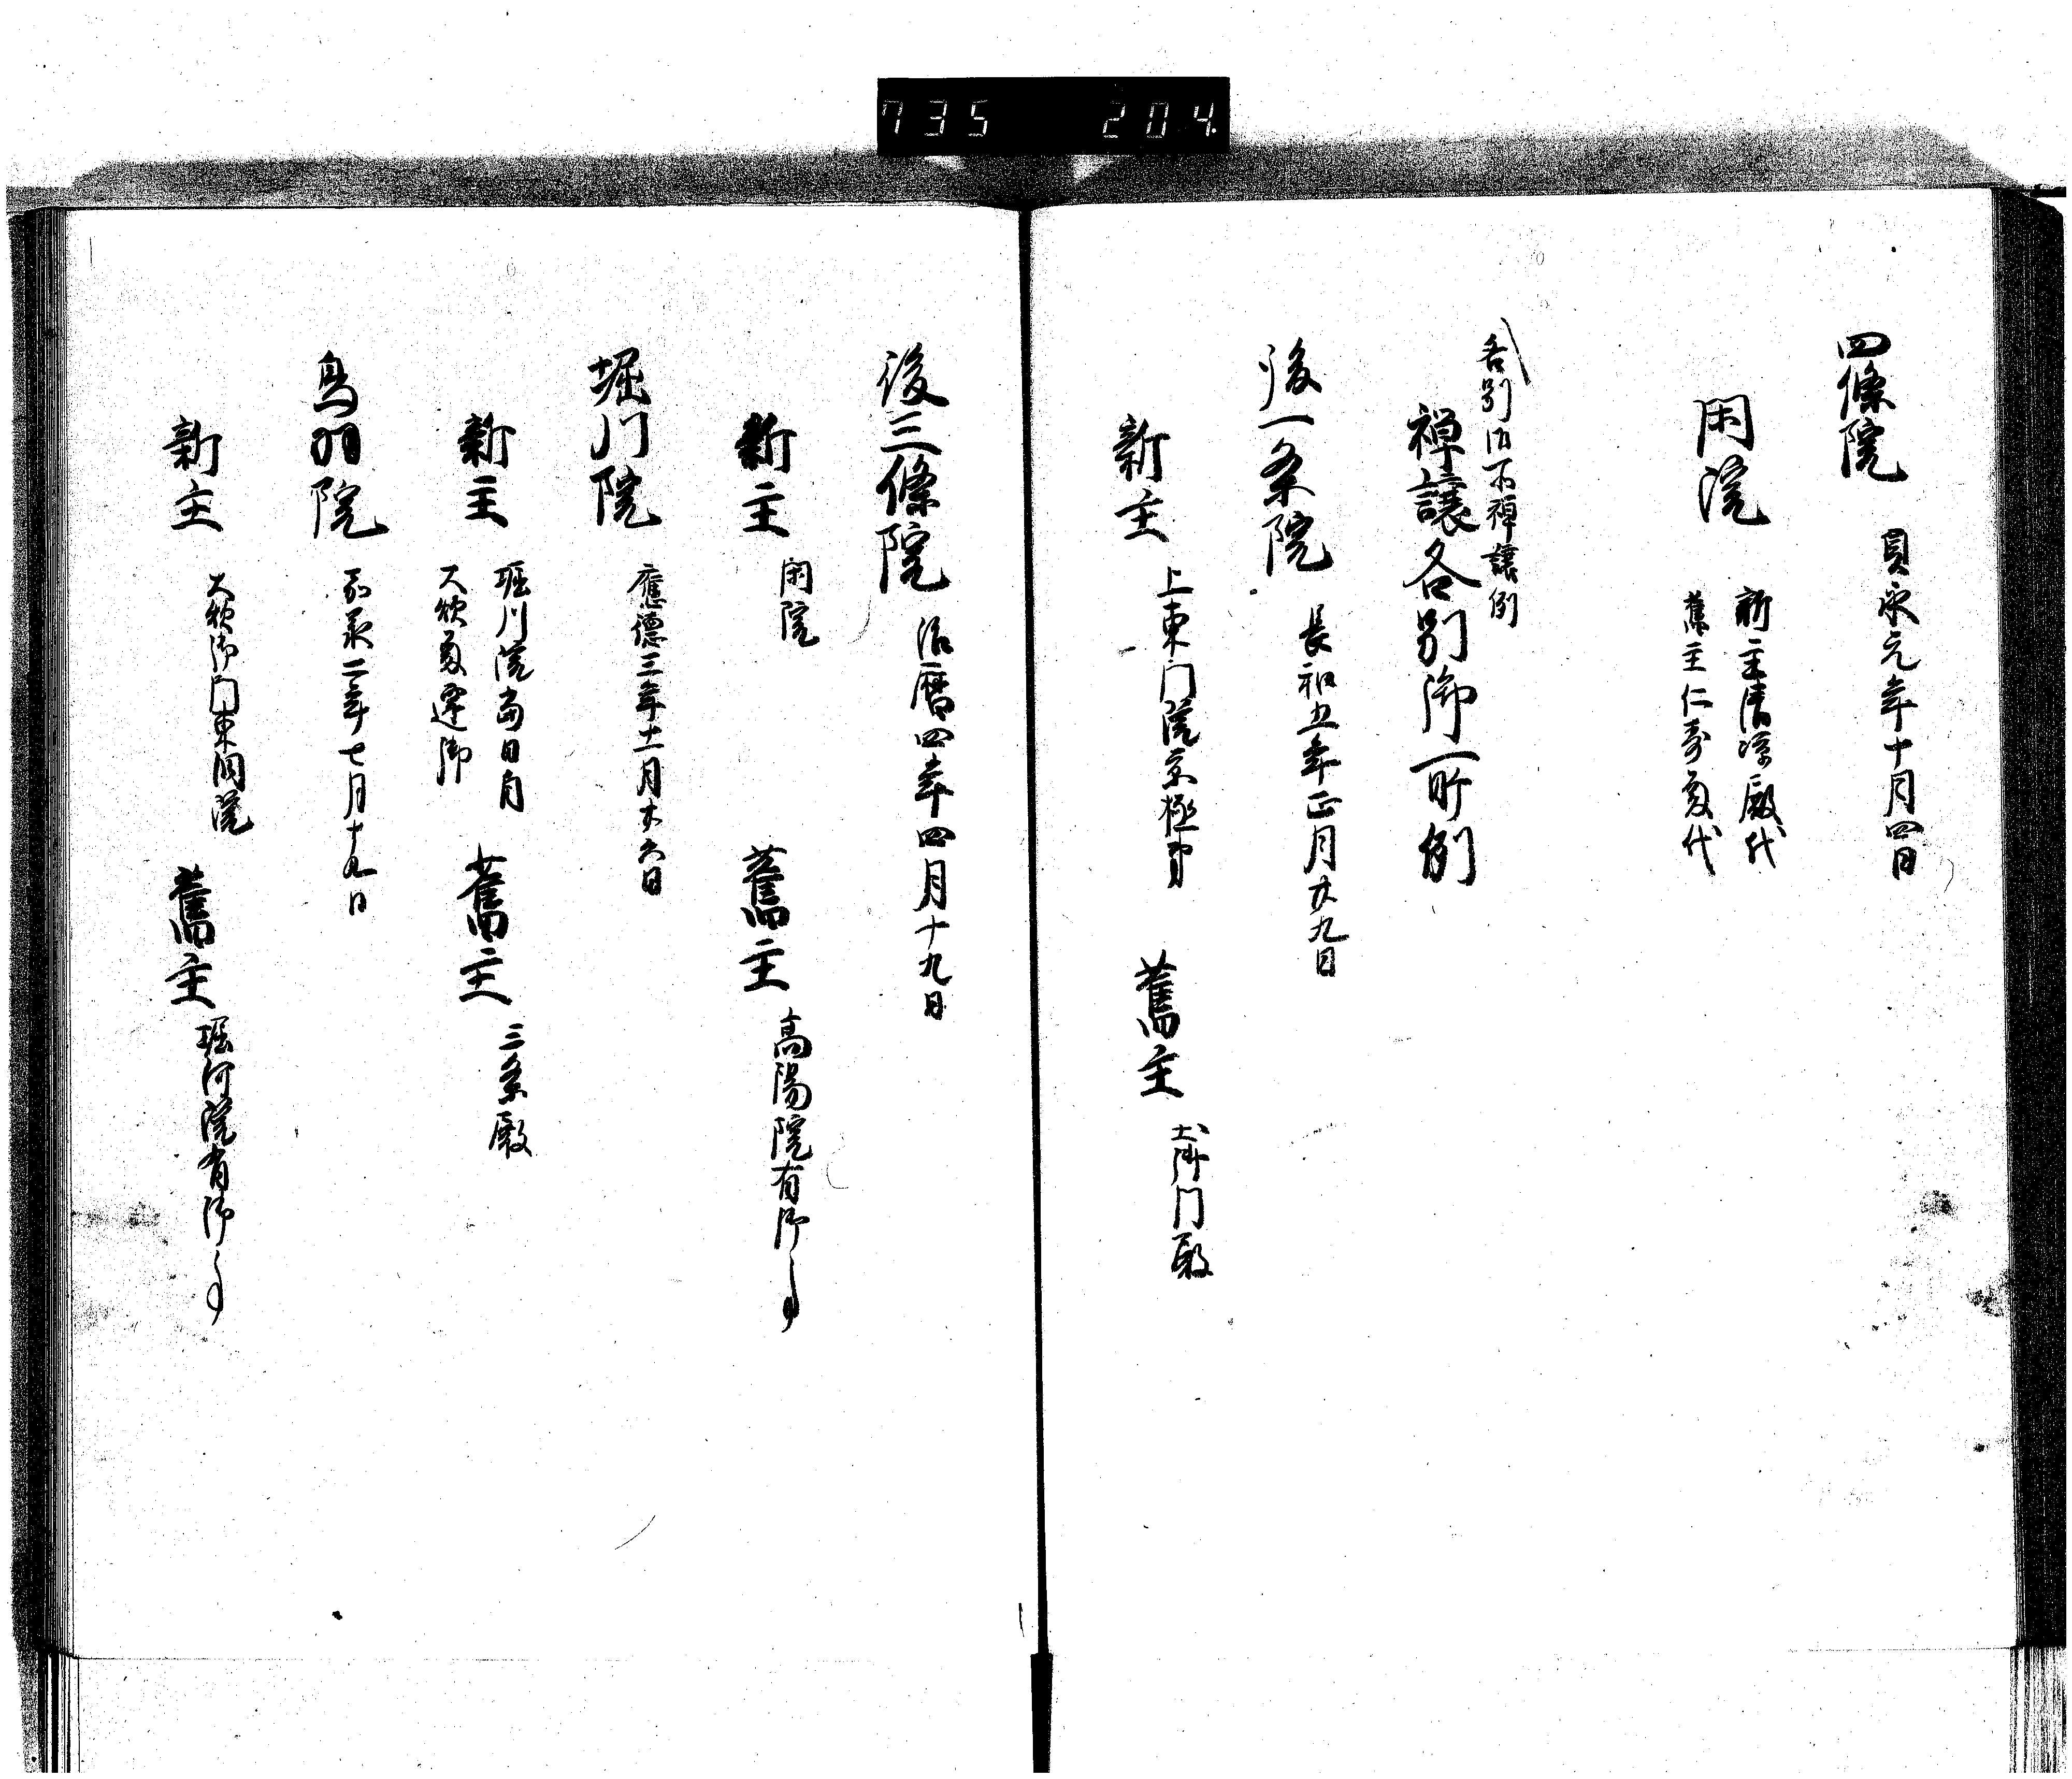 735 204
四條院 貞永元年十月四日
閑院 新主清凉殿代
舊主仁寿殿代
各別御所禅譲例
禅譲各別御所例
後一条院 長和五年正月廿九日
新主 上東门院京極第 舊主 土御门殿
後三條院 治暦四年四月十九日
新主 閑院 舊主 高陽院有御
堀川院 應德三年十一月廿六日
新主 堀川院当日自
大炊殿遷御 舊主 三条殿
鳥羽院 嘉承二年七月十九日
新主 大炊御门東洞院 舊主 堀河院有御